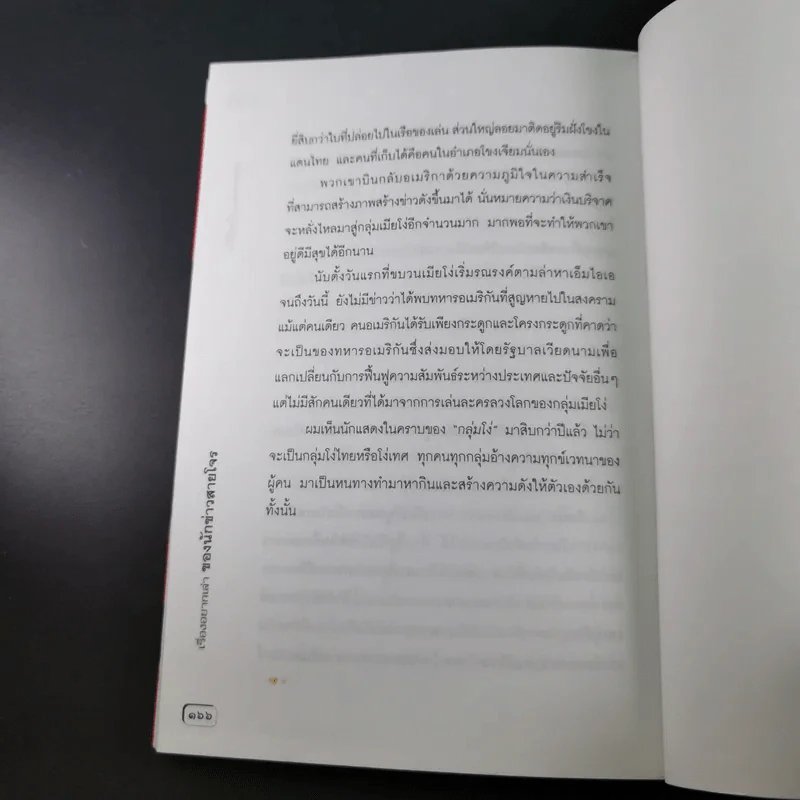 ยี่สิบกว่าใบที่ปล่อยไปในเรือของเล่น ส่วนใหญ่ลอยมาติดอยู่ริมฝั่งโขงใน
แดนไทย และคนที่เก็บได้คือคนในอำเภอโขงเจียมนั่นเอง
พวกเขาบินกลับอเมริกาด้วยความภูมิใจในความสำเร็จ
ที่สามารถสร้างภาพสร้างข่าวดังขึ้นมาได้ นั่นหมายความว่าเงินบริจาค
จะหลั่งไหลมาสู่กลุ่มเมียโง่อีกจำนวนมาก มากพอที่จะทำให้พวกเขา
อยู่ดีมีสุขได้อีกนาน
นับตั้งวันแรกที่ขบวนเมียโง่เริ่มรณรงค์ตามล่าหาเอ็มไอเอ
จนถึงวันนี้ ยังไม่มีข่าวว่าได้พบทหารอเมริกันที่สูญหายไปในสงคราม
แม้แต่คนเดียว คนอเมริกันได้รับเพียงกระดูกและโครงกระดูกที่คาดว่า
จะเป็นของทหารอเมริกันซึ่งส่งมอบให้โดยรัฐบาลเวียดนามเพื่อ
แลกเปลี่ยนกับการฟื้นฟูความสัมพันธ์ระหว่างประเทศและปัจจัยอื่นๆ
แต่ไม่มีสักคนเดียวที่ได้มาจากการเล่นละครลวงโลกของกลุ่มเมียโง่
ผมเห็นนักแสดงในคราบของ “กลุ่มโง่” มาสิบกว่าปีแล้ว ไม่ว่า
จะเป็นกลุ่มโง่ไทยหรือโง่เทศ ทุกคนทุกกลุ่มอ้างความทุกข์เวทนาของ
ผู้คน มาเป็นหนทางทำมาหากินและสร้างความดังให้ตัวเองด้วยกัน
ทั้งนั้น
เรื่องอยากเล่า ของนักข่าวสายโจร
๑๖๖